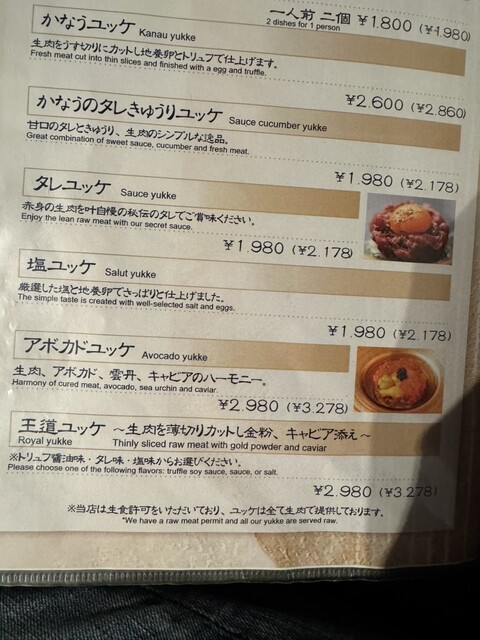 一人前 二個 ¥1.800 (¥1.980)
2 dishes for 1 person
かなうユッケ Kanau yukke
生肉をうす切りにカットし地養卵とトリュフで仕上げます。
Fresh meat cut into thin slices and finished with a egg and truffle.
¥2.600 (¥2.860)
かなうのタレきゅうりユッケ Sauce cucumber yukke
甘口のタレときゅうり、生肉のシンプルな逸品。
Great combination of sweet sauce, cucumber and fresh meat.
¥1.980 (¥2.178)
タレユッケ Sauce yukke
赤身の生肉を叶自慢の秘伝のタレでご賞味ください。
Enjoy the lean raw meat with our secret sauce.
¥1.980 (¥2.178)
塩ユッケ Salut yukke
厳選した塩と地養卵でさっぱりと仕上げました。
The simple taste is created with well-selected salt and eggs.
¥1.980 (¥2.178)
アボカドユッケ Avocado yukke
生肉、アボカド、雲丹、キャビアのハーモニー。
Harmony of cured meat, avocado, sea urchin and caviar.
¥2.980 (¥3.278)
王道ユッケ ～生肉を薄切りカットし金粉、キャビア添え～
Royal yukke Thinly sliced raw meat with gold powder and caviar
※トリュフ醤油味・タレ味・塩味からお選びください。
Please choose one of the following flavors: truffle soy sauce, sauce, or salt.
¥2.980 (¥3.278)
※当店は生食許可をいただいており、ユッケは全て生肉で提供しております。
*We have a raw meat permit and all our yukke are served raw.